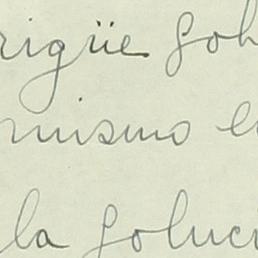 rigüe sob
mismo e
la soluci